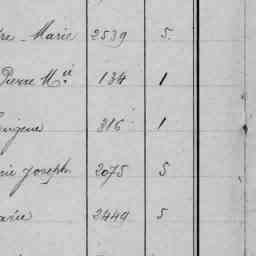 re Marie 2539 5.
Pierre M.ie 134 1
Eugène 316 1
rie Joseph 2075 5
Marie 2449 5